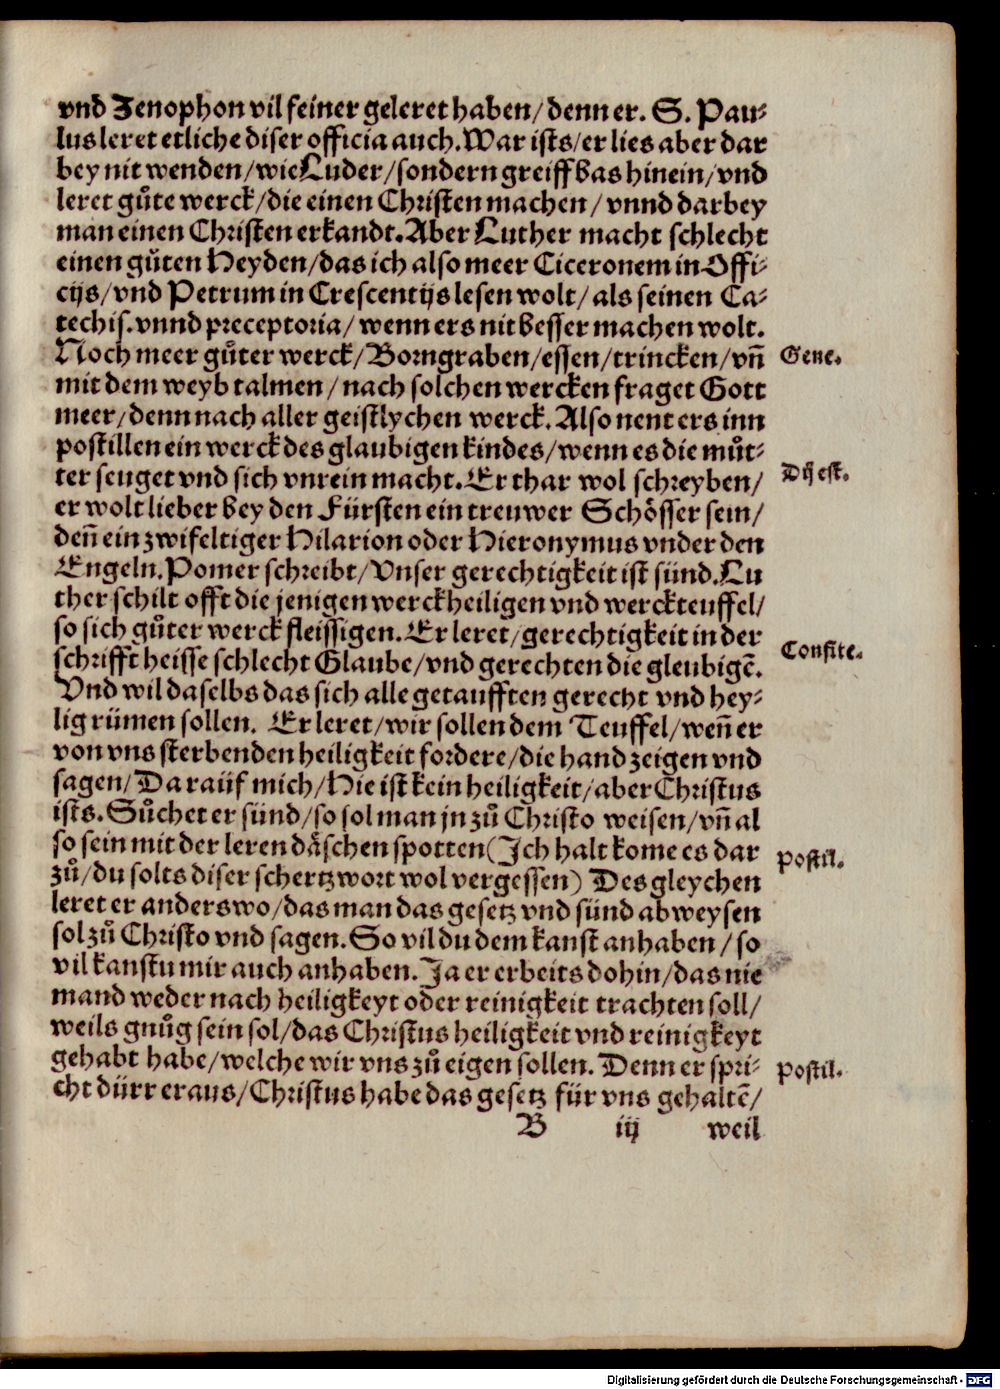 vnd Xenophon vil feiner geleret haben/ denn er. S. Pau⸗
lus leret etliche diser officia auch. War ists/ er lies aber dar
bey nit wenden/ wie Luder/ sondern greiff bas hinein/ vnd
leret gůte werck/ die einen Christen machen/ vnnd darbey
man einen Christen erkandt. Aber Luther macht schlecht
einen gůten Heyden/ das ich also meer Ciceronem in Offi⸗
cijs/ vnd Petrum in Crescentijs lesen wolt/ als seinen Ca⸗
techis. vnnd preceptoria/ wenn ers nit besser machen wolt.
Noch meer gůter werck/ Borngraben/ essen/ trincken/ vñ
Gene.
mit dem weyb talmen/ nach solchen wercken fraget Gott
meer/ denn nach aller geistlychen werck. Also nent ers inn
postillen ein werck des glaubigen kindes/ wenn es die můt⸗
ter seuget vnd sich vnrein macht. Er thar wol schreyben/
Dij est.
er wolt lieber bey den Fürsten ein treuwer Schösser sein/
deñ ein zwifeltiger Hilarion oder Hieronymus vnder den
Engeln. Pomer schreibt/ Vnser gerechtigkeit ist sünd. Lu
ther schilt offt die jenigen werckheiligen vnd werckteuffel/
so sich gůter werck fleissigen. Er leret/ gerechtigkeit in der
schrifft heisse schlecht Glaube/ vnd gerechten die gleubigẽ.
Confite.
Vnd wil daselbs das sich alle getaufften gerecht vnd hey⸗
lig rümen sollen. Er leret/ wir sollen dem Teuffel/ weñ er
von vns sterbenden heiligkeit fordere/ die hand zeigen vnd
sagen/ Da rauff mich/ Hie ist kein heiligkeit/ aber Christus
ists. Sůchet er sünd/ so sol man jn zů Christo weisen/ vñ al
so sein mit der leren däschen spotten (Ich halt kome es dar
Postil.
zů/ du solts diser schertzwort wol vergessen) Des gleychen
leret er anderswo/ das man das gesetz vnd sünd abweysen
sol zů Christo vnd sagen. So vil du dem kanst anhaben/ so
vil kanstu mir auch anhaben. Ja er erbeits dohin/ das nie
mand weder nach heiligkeyt oder reinigkeit trachten soll/
weils gnůg sein sol/ das Christus heiligkeit vnd reinigkeyt
gehabt habe/ welche wir vns zů eigen sollen. Denn er spri⸗
Postil.
cht dürr eraus/ Christus habe das gesetz für vns gehaltẽ/
B iij weil
Digitalisierung gefördert durch die Deutsche Forschungsgemeinschaft - DFG